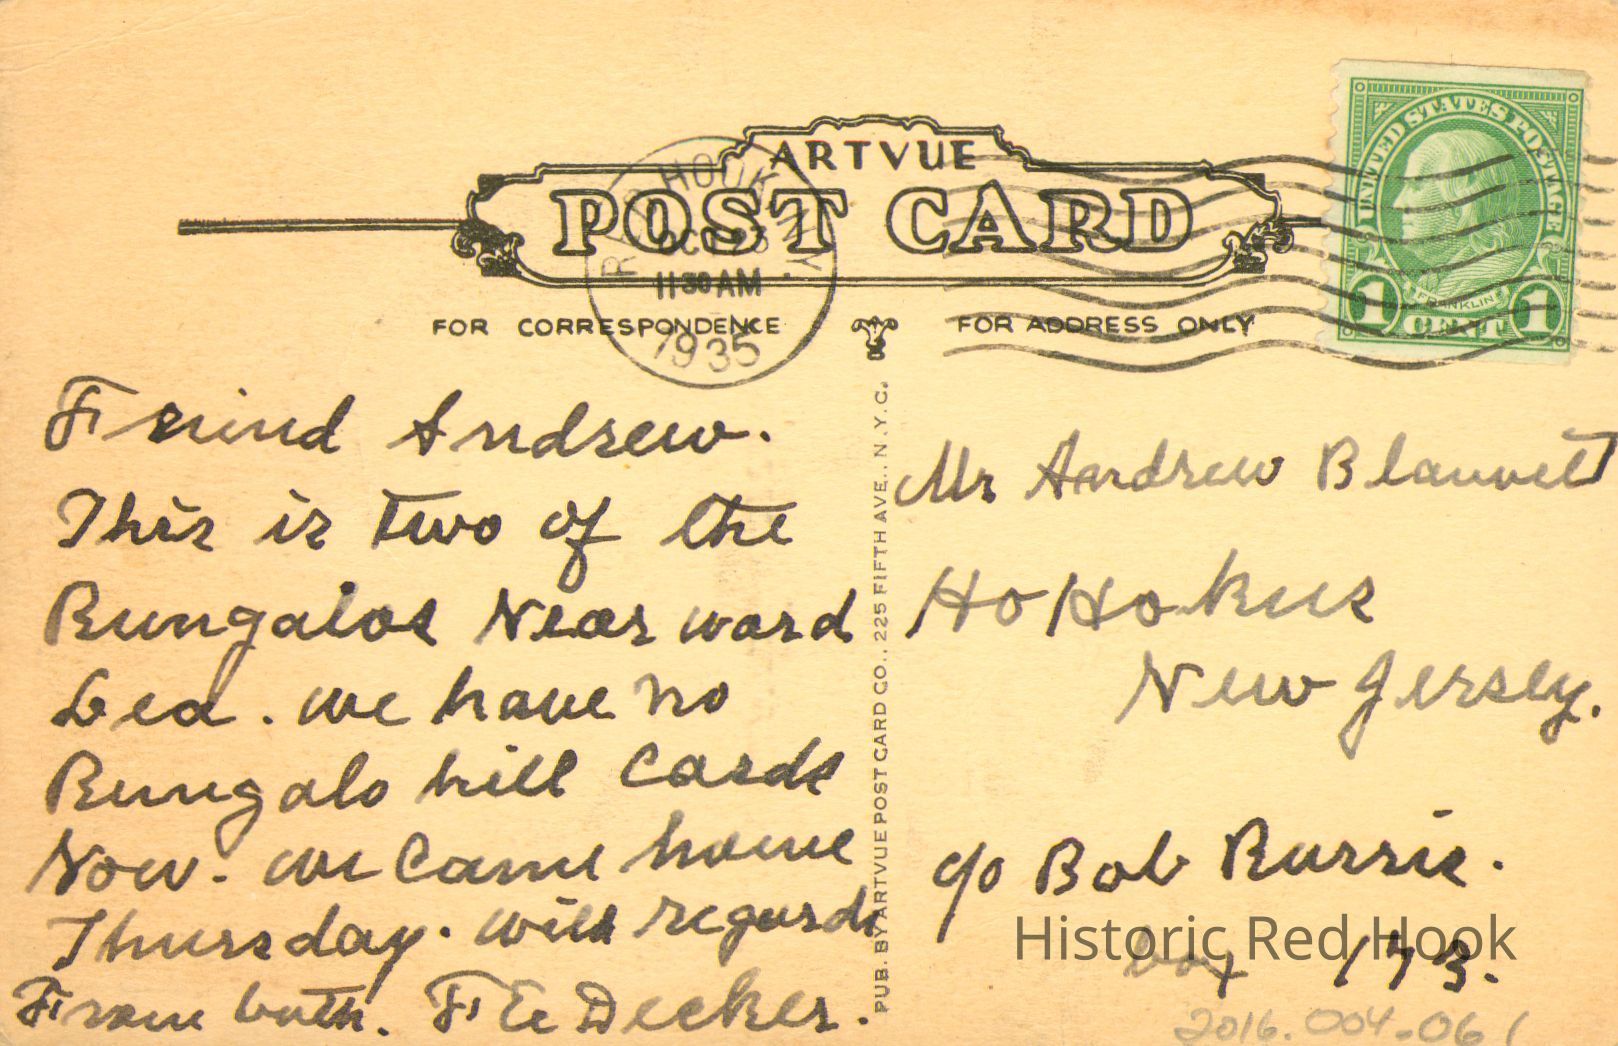 ARTVUE
POST CARD
RED HOOK N.Y.
OCT
11 30 AM
1935
UNITED STATES POSTAGE
FRANKLIN
1 CENT 1
FOR CORRESPONDENCE
FOR ADDRESS ONLY
Freind Andrew.
This is two of the
Bungalos Near ward
Lea. we have no
Bungalo hill Cards
Now. we came home
Thursday. with regards
From both. F E Decker.
PUB. BY ARTVUE POST CARD CO., 225 FIFTH AVE., N.Y.C.
Mr Andrew Blauvelt
HoHokus
New Jersey.
c/o Bob Russie.
box 173.
Historic Red Hook
2016.004.061